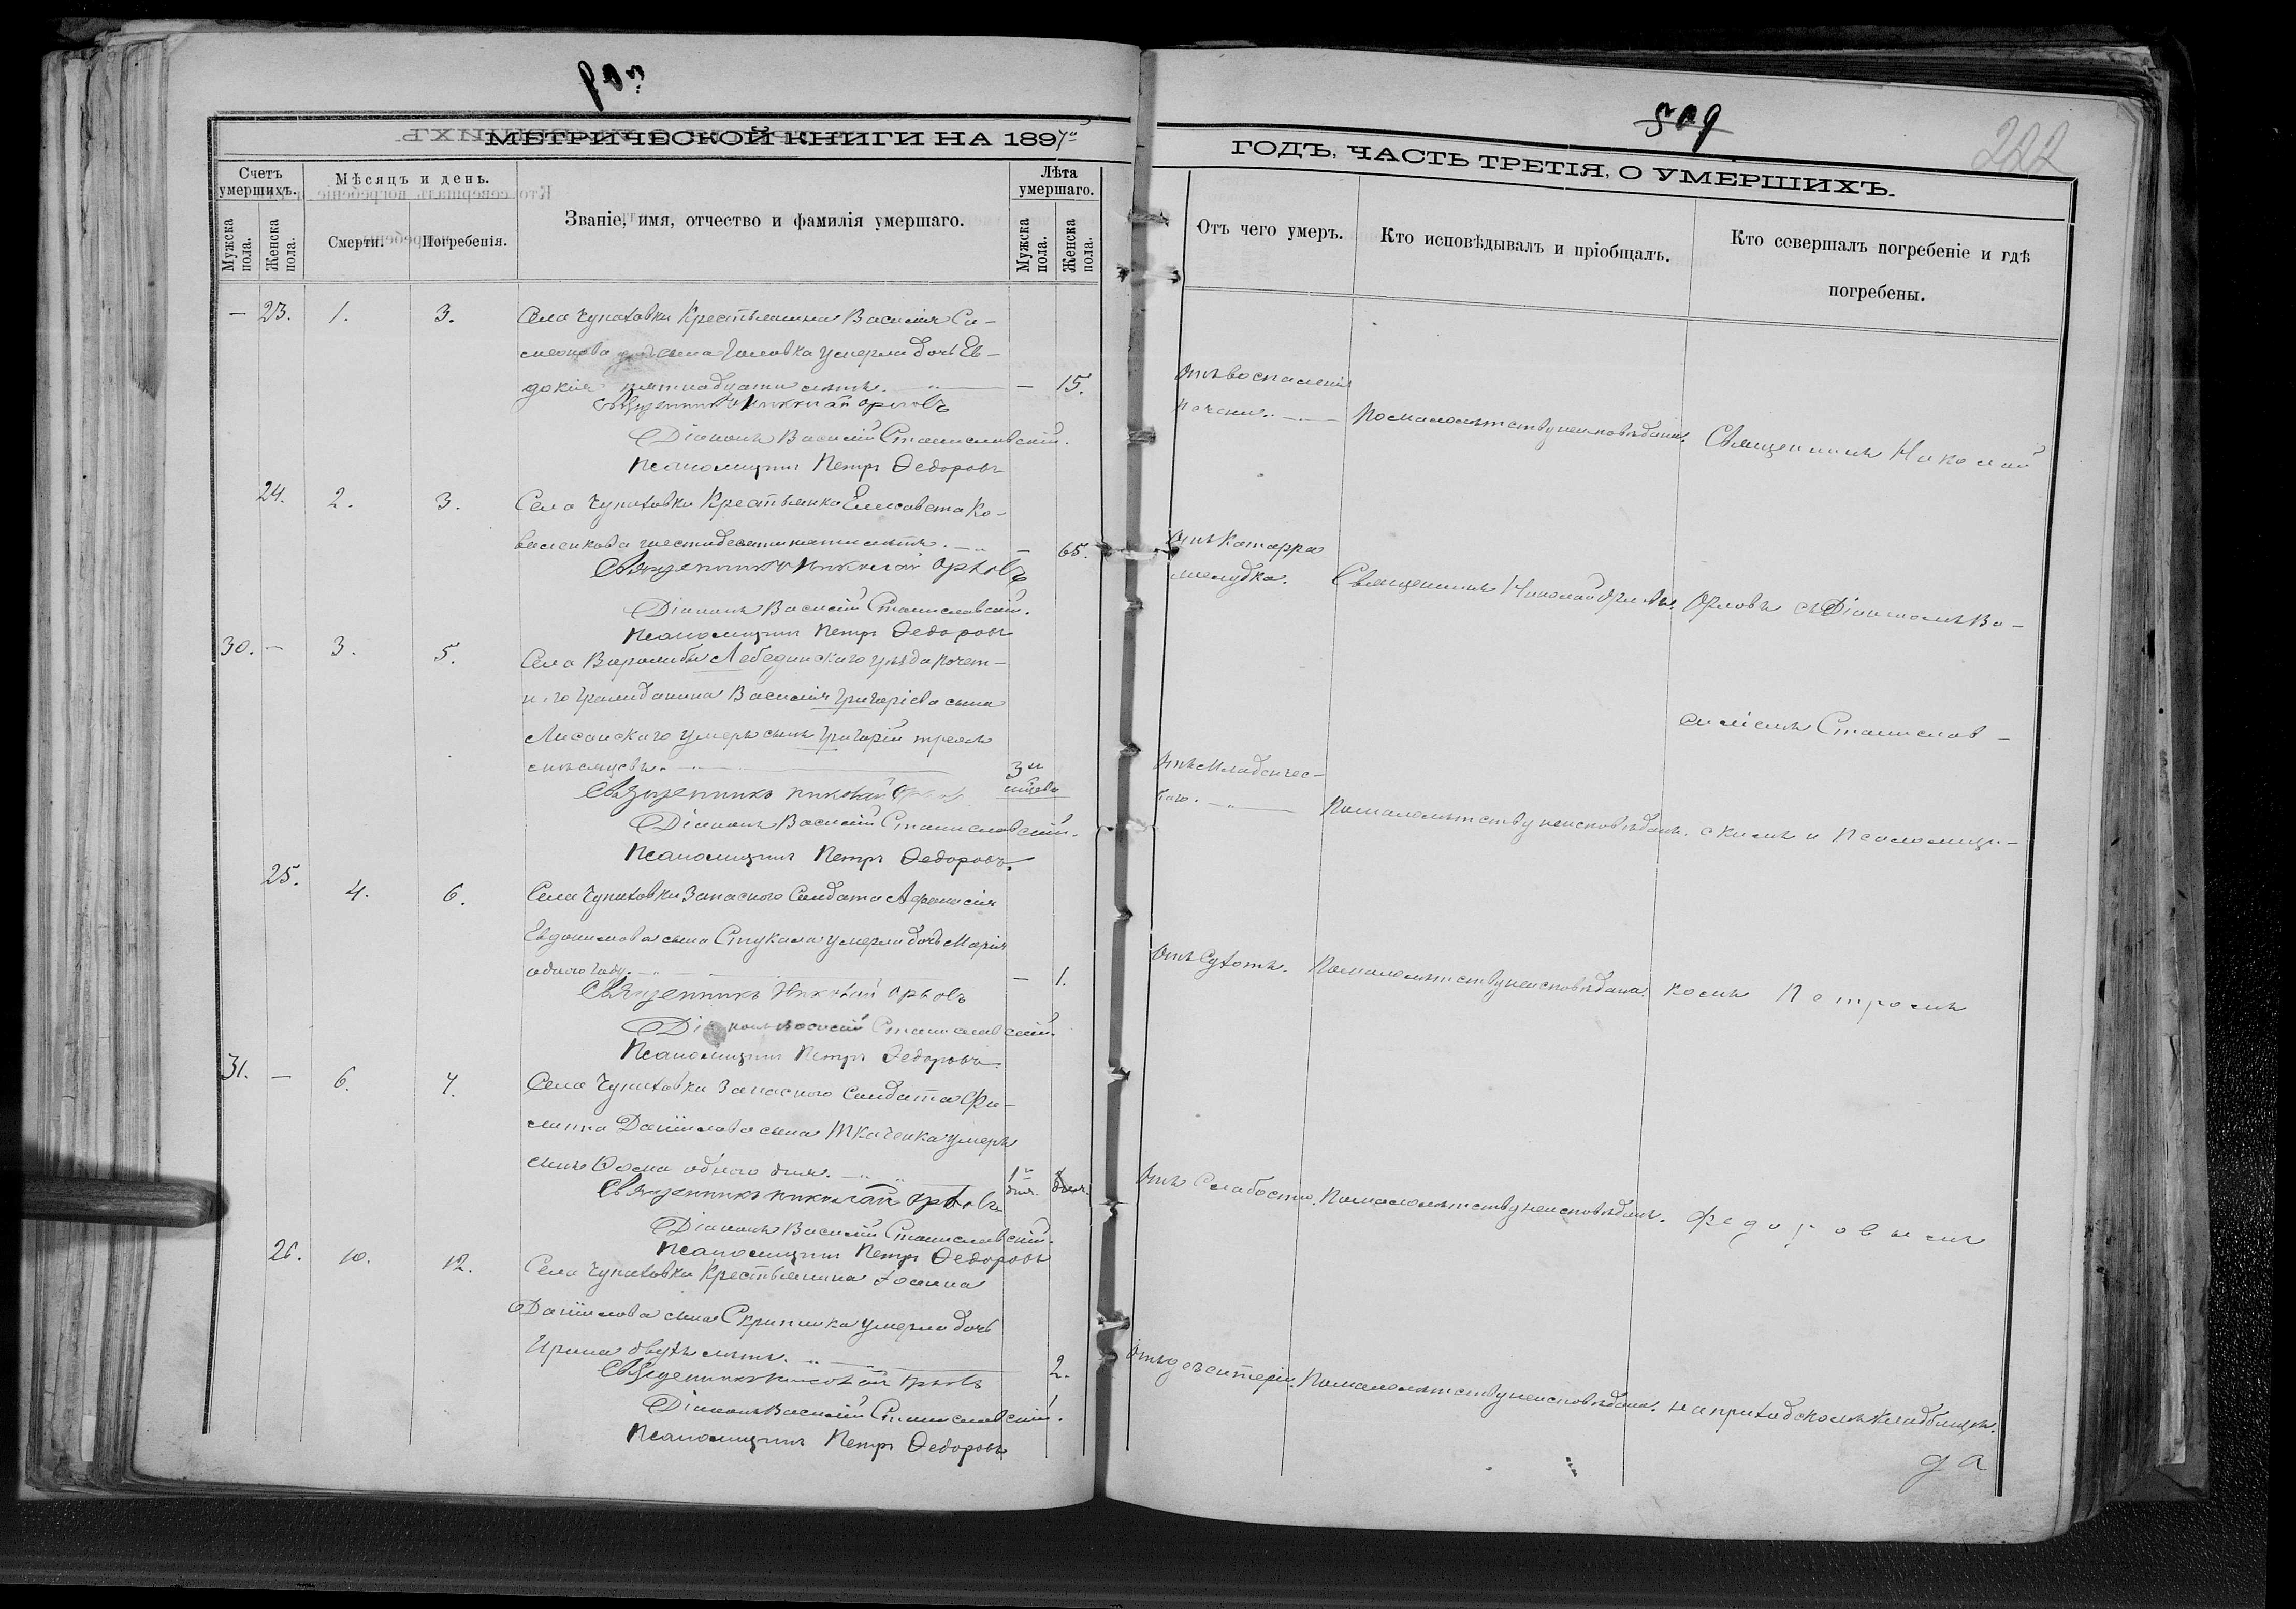 МЕТРИЧЕСКОЙ КНИГИ НА 1897й
Счетъ умершихъ.
Мѣсяцъ и день.
Званіе, имя, отчество и фамилія умершаго.
Лѣта умершаго.
Мужска пола.
Женска пола.
Смерти.
Погребенія.
Мужска пола.
Женска пола.
— 23. 1. 3. Села Чупаховки Крестьянина Василія Си-
меонова сына Головка умерла дочь Ев-
докія пятнадцати лѣтъ. — 15.
Священникъ Николай Орловъ
Діаконъ Василій Станиславскій.
Псаломщикъ Петръ Ѳедоровъ
24. 2. 3. Села Чупаховки Крестьянка Елисавета Ко-
валенкова шестидесяти пяти лѣтъ. — 65.
Священникъ Николай Орловъ
Діаконъ Василій Станиславскій.
Псаломщикъ Петръ Ѳедоровъ
30. — 3. 5. Села Ворожбы Лебединскаго уѣзда почет-
наго гражданина Василія Григоріева сына
Лисанскаго умеръ сынъ Григорій трехъ
мѣсяцевъ. 3хъ
Священникъ Николай
Діаконъ Василій Станиславскій.
Псаломщикъ Петръ Ѳедоровъ.
25. 4. 6. Села Чупаховки Запасного Солдата Афанасія
Евдокимова сына Стукала умерла дочь Марія
одного году. — 1.
Священникъ Николай Орловъ
Діаконъ Василій Станиславскій.
Псаломщикъ Петръ Ѳедоровъ
31. — 6. 7. Села Чупаховки Запасного Солдата Фи-
липпа Даніилова сына Ткаченка умеръ
сынъ Ѳома одного дня. 1 дня.
Священникъ Николай Орловъ
Діаконъ Василій Станиславскій.
Псаломщикъ Петръ Ѳедоровъ
26. 10. 12. Села Чупаховки Крестьянина Іоанна
Даніилова сына Скрипника умерла дочь
Ирина двухъ лѣтъ. 2.
Священникъ Николай Орловъ
Діаконъ Василій Станиславскій.
Псаломщикъ Петръ Ѳедоровъ
509
222
ГОДЪ, ЧАСТЬ ТРЕТІЯ, О УМЕРШИХЪ.
Отъ чего умеръ.
Кто исповѣдывалъ и пріобщалъ.
Кто совершалъ погребеніе и гдѣ
погребены.
Отъ воспаленія
печени. По малолѣтству неисповѣдана. Священникъ Николай
Отъ Катарра
желудка. Священникъ Николай Орловъ. Орловъ съ Діакономъ Ва-
силіемъ Станислав-
Отъ Младенчес-
каго. По малолѣтству неисповѣданъ. скимъ и Псаломщи-
Отъ Сухотъ. По малолѣтству неисповѣдана. комъ Петромъ
Отъ Слабости. По малолѣтству неисповѣданъ. Федоровымъ
По малолѣтству неисповѣдана. на приходскомъ кладбищѣ.
да